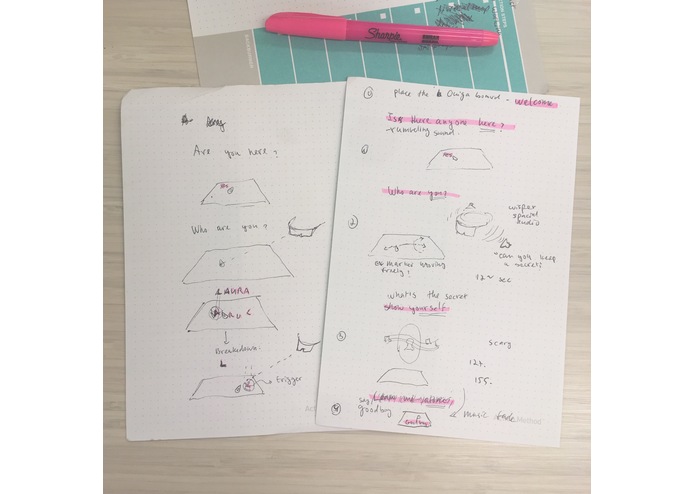 Sharpie
Are you here?
YES
Who are you?
LAURA
Breakdown.
L
trigger
0 place the Ouija board - welcome
Is there anyone here?
rumbling sound.
1
YES
Who are you?
wisper
spacial
audio
2
marker moving
freely?
"can you keep
a secret?
12~ sec
what's the secret
show yourself
3
scary
12+.
15s.
say
goodby
4
music fade
Method